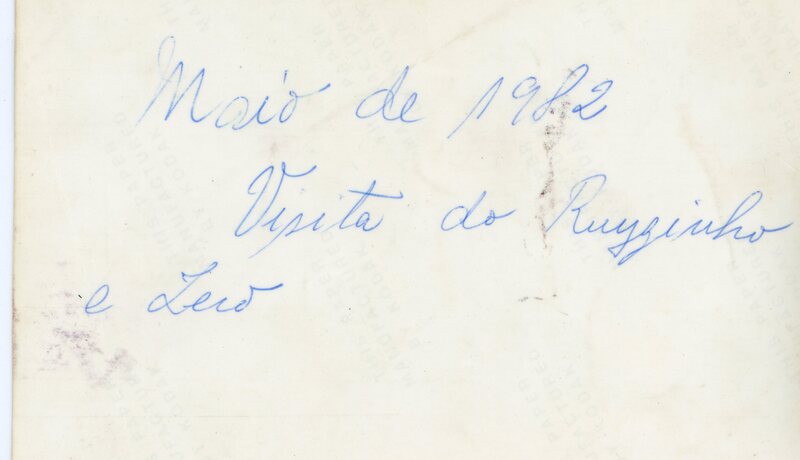 Maio de 1982
Visita do Ruyzinho
e Zeco